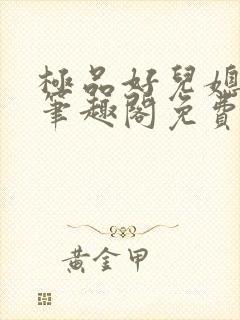 極品好兒媳
筆趣閣免費
黃金甲